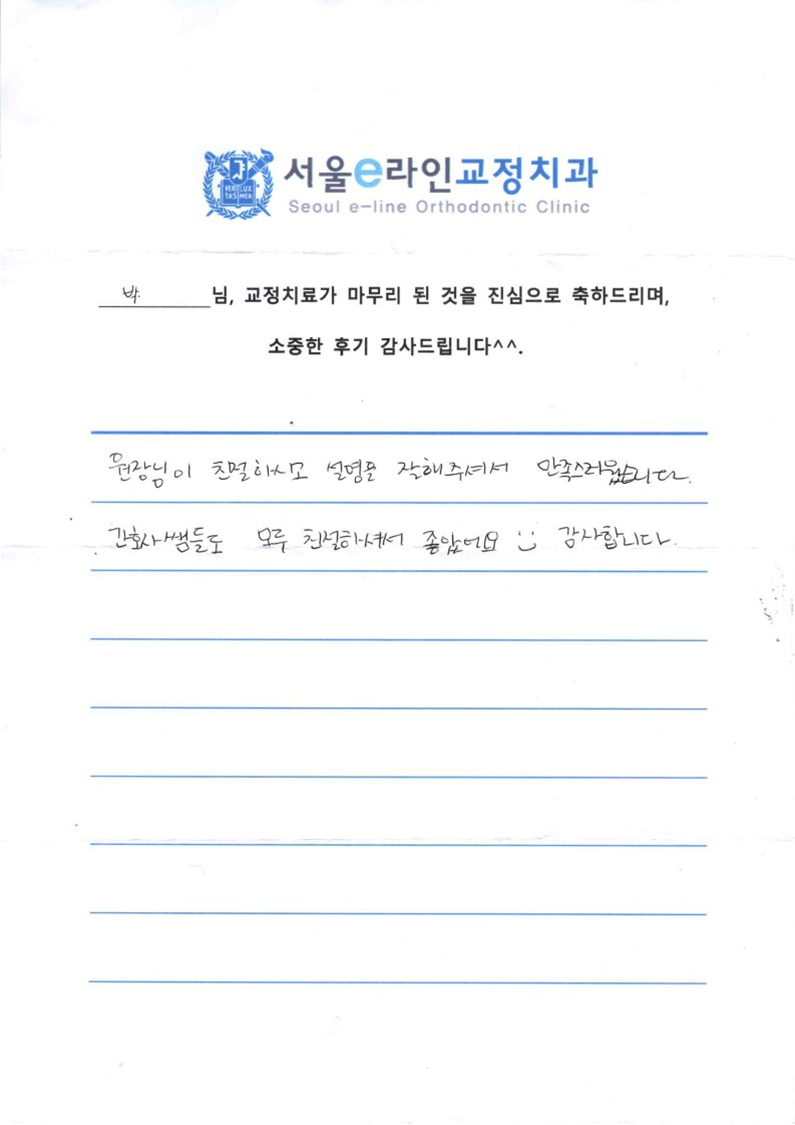 VERI LUX
TAS MEA
서울e라인교정치과
Seoul e-line Orthodontic Clinic
박 님, 교정치료가 마무리 된 것을 진심으로 축하드리며,
소중한 후기 감사드립니다^^.
원장님이 친절하시고 설명을 잘해주셔서 만족스러웠습니다.
간호사쌤들도 모두 친절하셔서 좋았어요 :) 감사합니다.